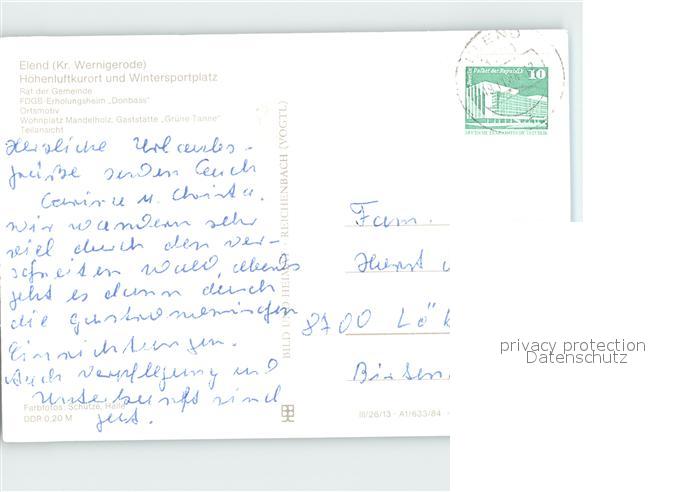 Elend (Kr. Wernigerode)
Höhenluftkurort und Wintersportplatz
Rat der Gemeinde
FDGB-Erholungsheim „Donbass"
Ortsmotiv
Wohnplatz Mandelholz, Gaststätte „Grüne Tanne"
Teilansicht
Herzliche Urlaubs-
grüße senden Euch
Carina u. Christa.
Wir wandern sehr
viel durch den ver-
schneiten Wald, abends
geht es dann durch
die gastronomischen
Einrichtungen.
Auch Verpflegung und
Unterkunft sind
gut.
Farbfotos: Schütze, Halle
DDR 0,20 M
BILD UND HEIMAT REICHENBACH (VOGTL)
III/26/13 · A1/633/84
ELEND
Palast der Republik
10
DEUTSCHE DEMOKRATISCHE REPUBLIK
Fam.
Horst
8700 Lö
privacy protection
Datenschutz